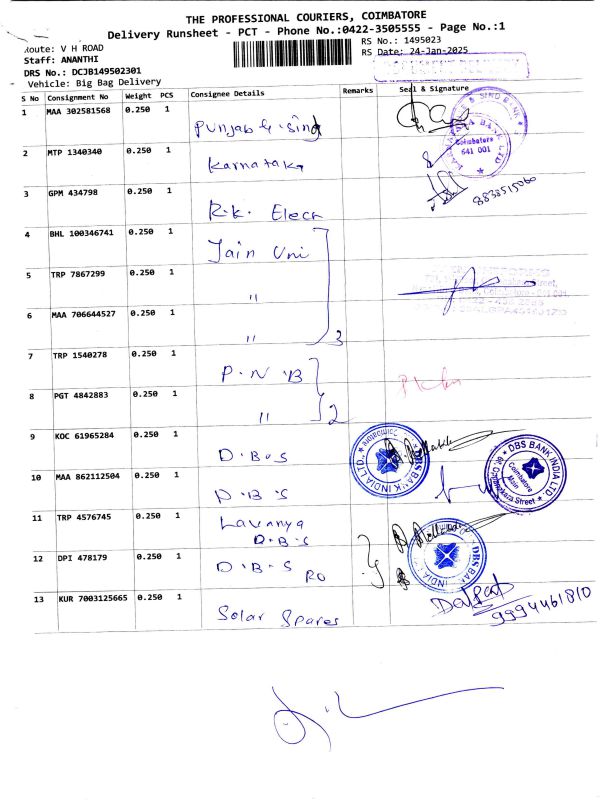 THE PROFESSIONAL COURIERS, COIMBATORE
Delivery Runsheet - PCT - Phone No.:0422-3505555 - Page No.:1
Route: V H ROAD
RS No.: 1495023
Staff: ANANTHI
RS Date: 24-Jan-2025
DRS No.: DCJB149502301
Vehicle: Big Bag Delivery
S No Consignment No Weight PCS Consignee Details Remarks Seal & Signature
1 MAA 302581568 0.250 1 Punjab & Sind
2 MTP 1340340 0.250 1 Karnataka
3 GPM 434798 0.250 1 R.K. Elect
8838515060
4 BHL 100346741 0.250 1 Jain Uni
5 TRP 7867299 0.250 1 "
6 MAA 706644527 0.250 1 " 3
7 TRP 1540278 0.250 1 P.N.B
8 PGT 4842883 0.250 1 " 2
9 KOC 61965284 0.250 1 D.B.S
10 MAA 862112504 0.250 1 D.B.S
11 TRP 4576745 0.250 1 Lavanya
D.B.S
12 DPI 478179 0.250 1 D.B.S RO
13 KUR 7003125665 0.250 1 Solar Spares
9994461810
& SIND BANK
KARNATAKA BANK LTD
Coimbatore
641 001
DBS BANK INDIA LTD.
Coimbatore
DBS BANK INDIA LTD
Coimbatore
Main
DBS BANK INDIA